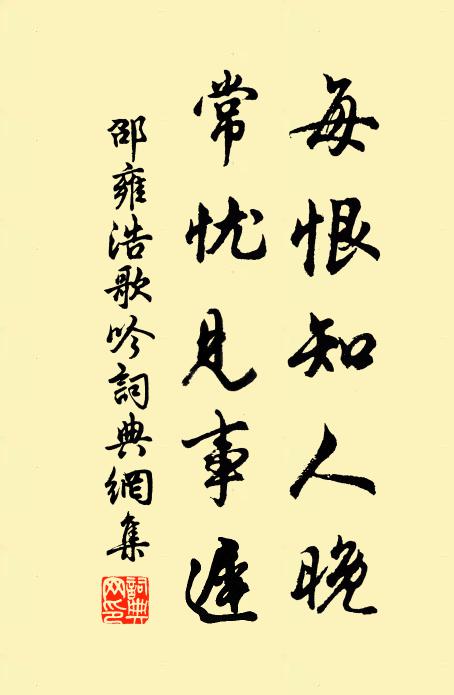 每恨知人晚
常忧见事遲
邵雍浩歌吟詞典網集
詞典網印